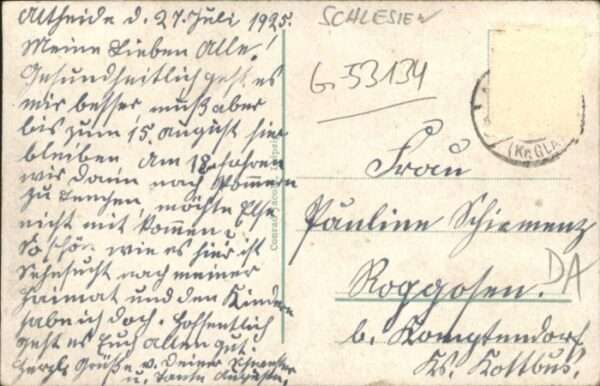 Altheide d. 27. Juli 1925.
Meine Lieben Alle!
Gesundheitlich geht es
mir besser muß aber
bis zum 15. August hier
bleiben. Am 18. fahren
wir dann nach Pommern
zu Lenchen, möchte Else
nicht mit kommen?
So schön wie es hier ist
Sehnsucht nach meiner
Heimat und den Kindern
habe ich doch. Hoffentlich
geht es Euch allen gut.
Herzl. Grüße v. Deiner Schwester
u. Tante Auguste.
Conrad Leipzig
SCHLESIEN
G. 53134
(Kr. GLA
Frau
Pauline Schiemenz
Roggosen.
DA
b. Komptendorf
Ks. Kottbus.